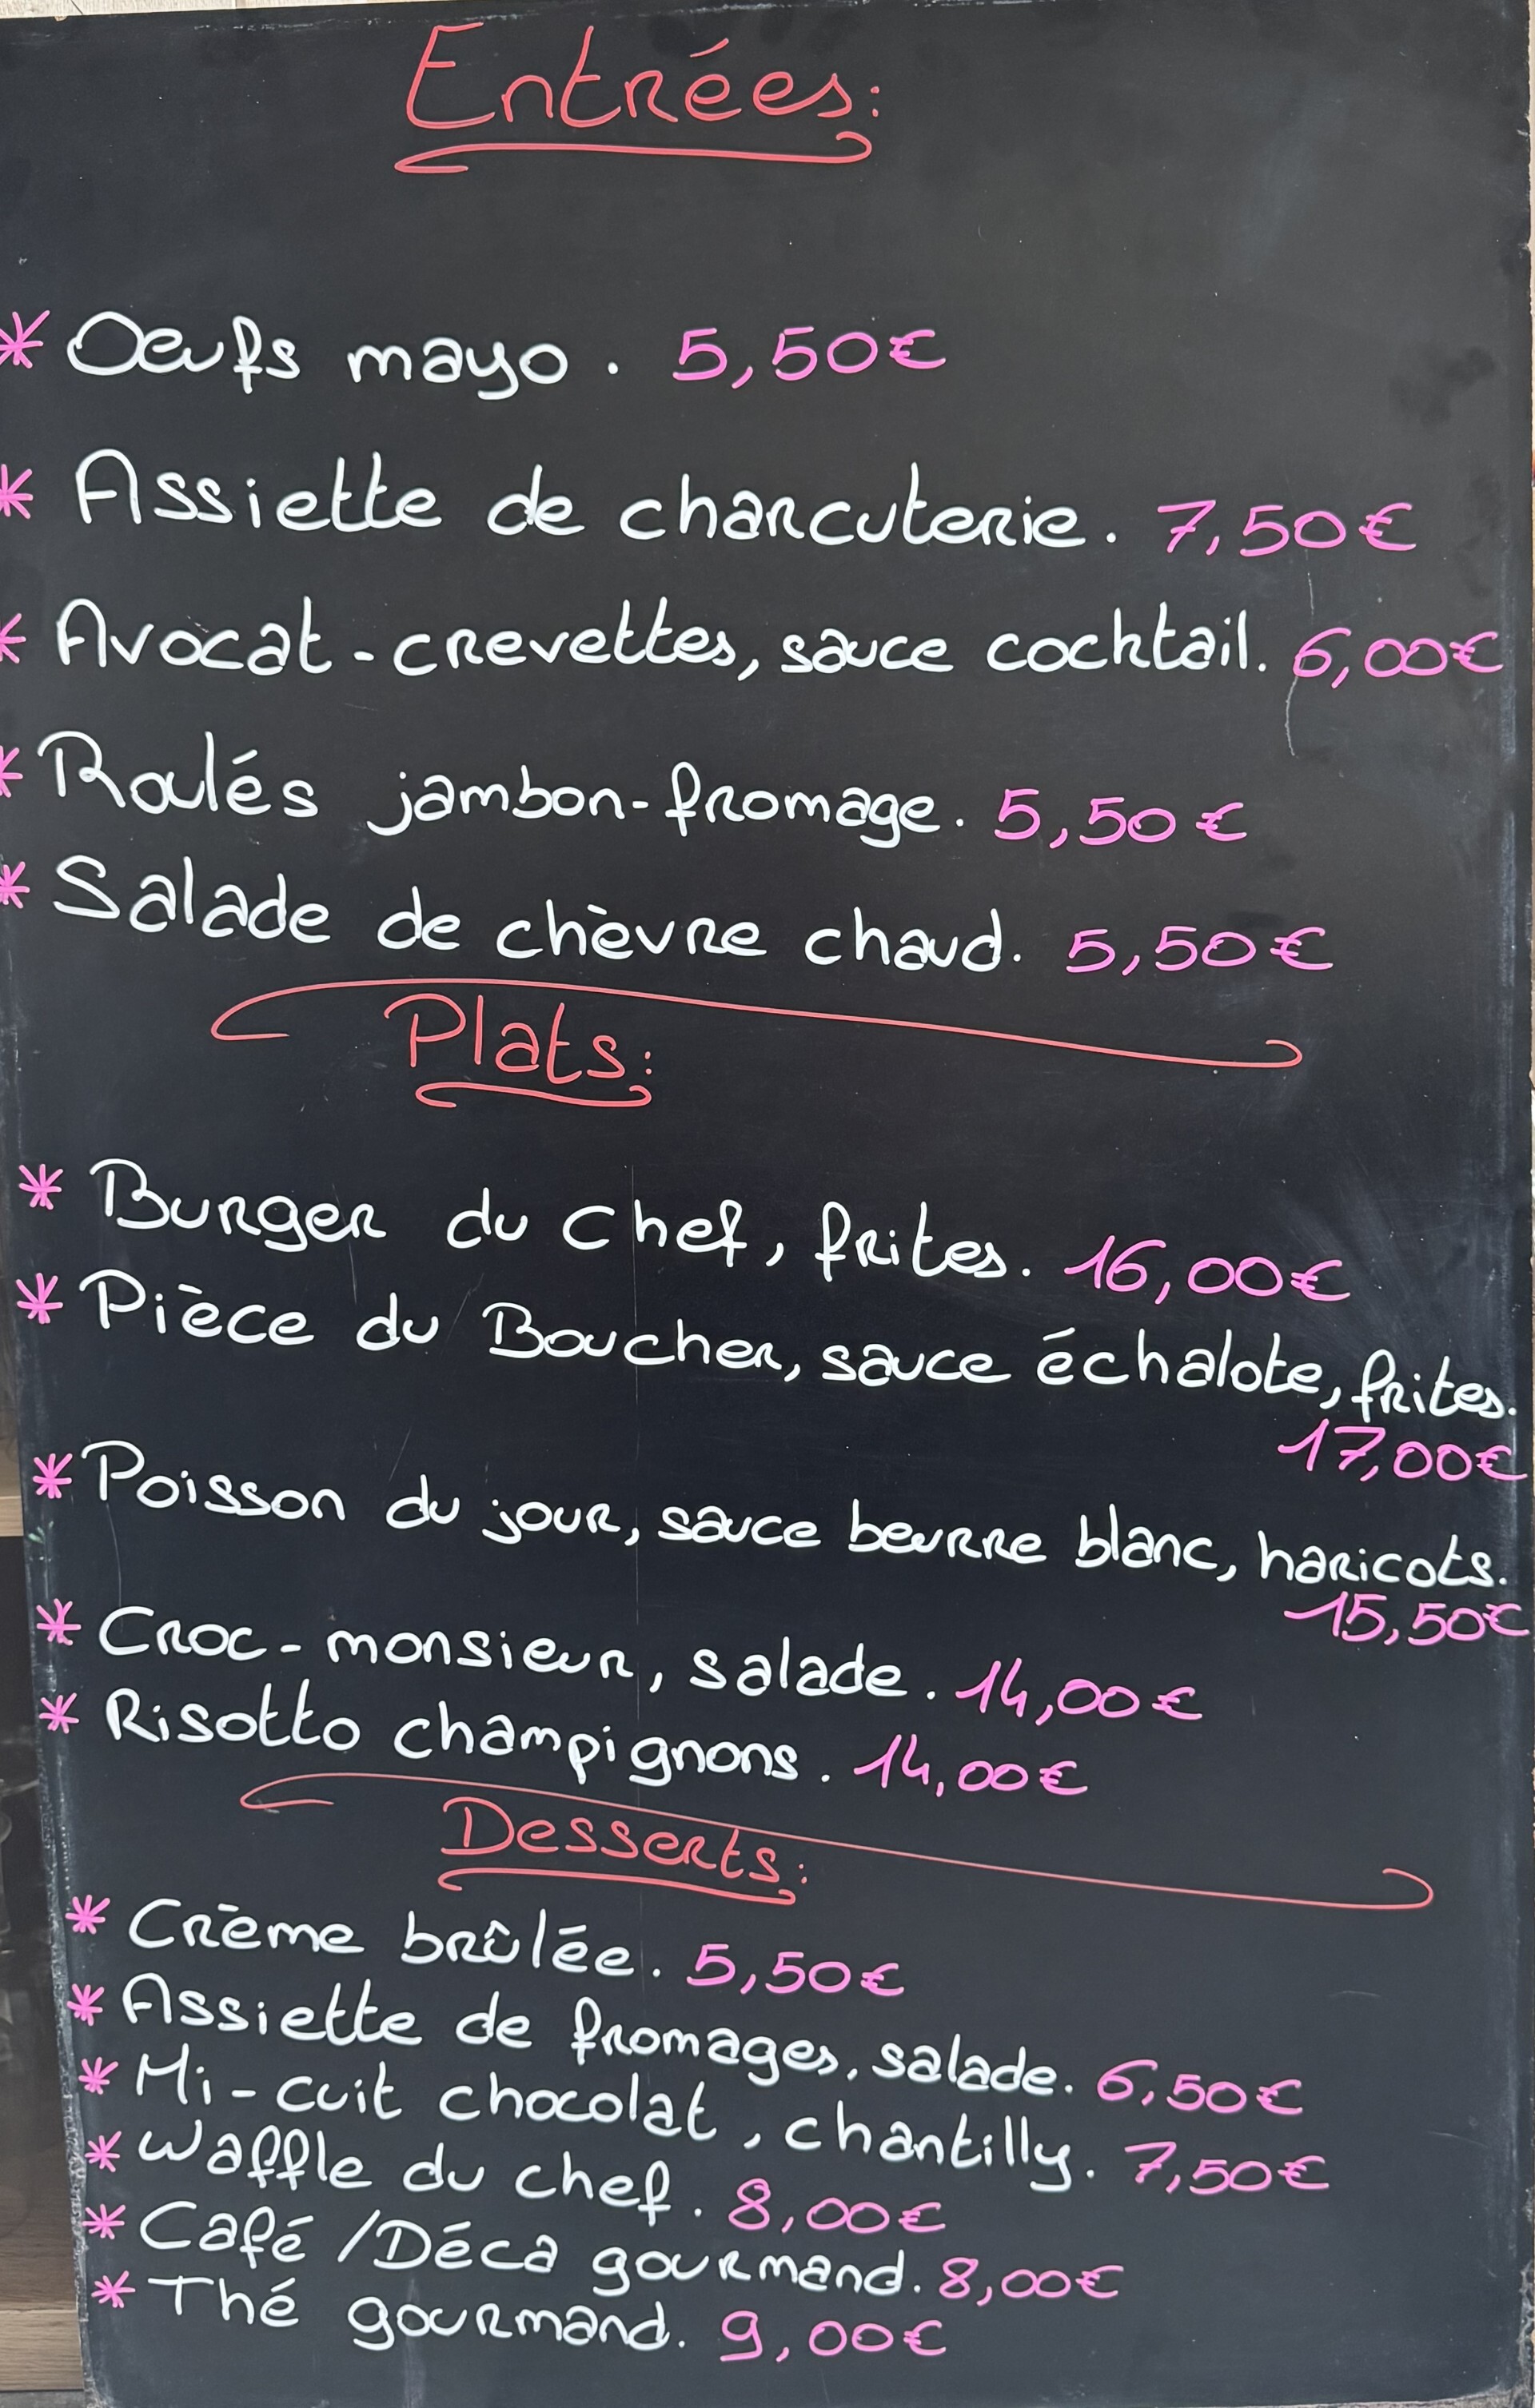 Entrées:
* Oeufs mayo. 5,50€
* Assiette de charcuterie. 7,50€
* Avocat-crevettes, sauce cocktail. 6,00€
* Roulés jambon-fromage. 5,50€
* Salade de chèvre chaud. 5,50€
Plats:
* Burger du Chef, frites. 16,00€
* Pièce du Boucher, sauce échalote, frites.
17,00€
* Poisson du jour, sauce beurre blanc, haricots.
15,50€
* Croc-monsieur, salade. 14,00€
* Risotto champignons. 14,00€
Desserts:
* Crème brûlée. 5,50€
* Assiette de fromages, salade. 6,50€
* Mi-cuit chocolat, chantilly. 7,50€
* Waffle du chef. 8,00€
* Café/Déca gourmand. 8,00€
* Thé gourmand. 9,00€